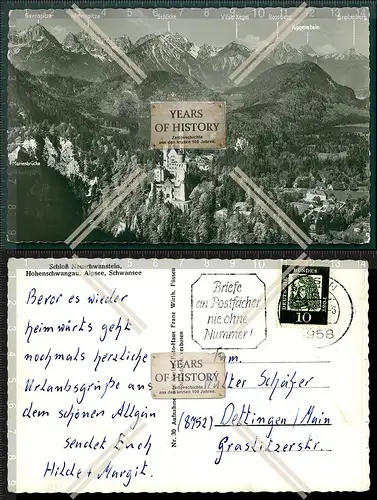 Gernspitze
Schlicke
Vilser Kegel
Aggenstein
Breitenberg
Marienbrücke
YEARS
OF HISTORY
Zeitgeschichte
aus den letzten 100 Jahren.
Schloß Neuschwanstein,
Hohenschwangau, Alpsee, Schwansee
Bevor es wieder
heimwärts geht
nochmals herzliche
Urlaubsgrüße aus
dem schönen Allgäu
sendet Euch
Hilde + Margit.
Franz Wirth, Füssen
Nr. 30
Briefe
an Postfächer
nie ohne
Nummer!
DEUTSCHE BUNDESPOST
10
8958
YEARS
OF HISTORY
Zeitgeschichte
aus den letzten 100 Jahren.
Fam.
Walter Schäfer
(8752) Dettingen/Main